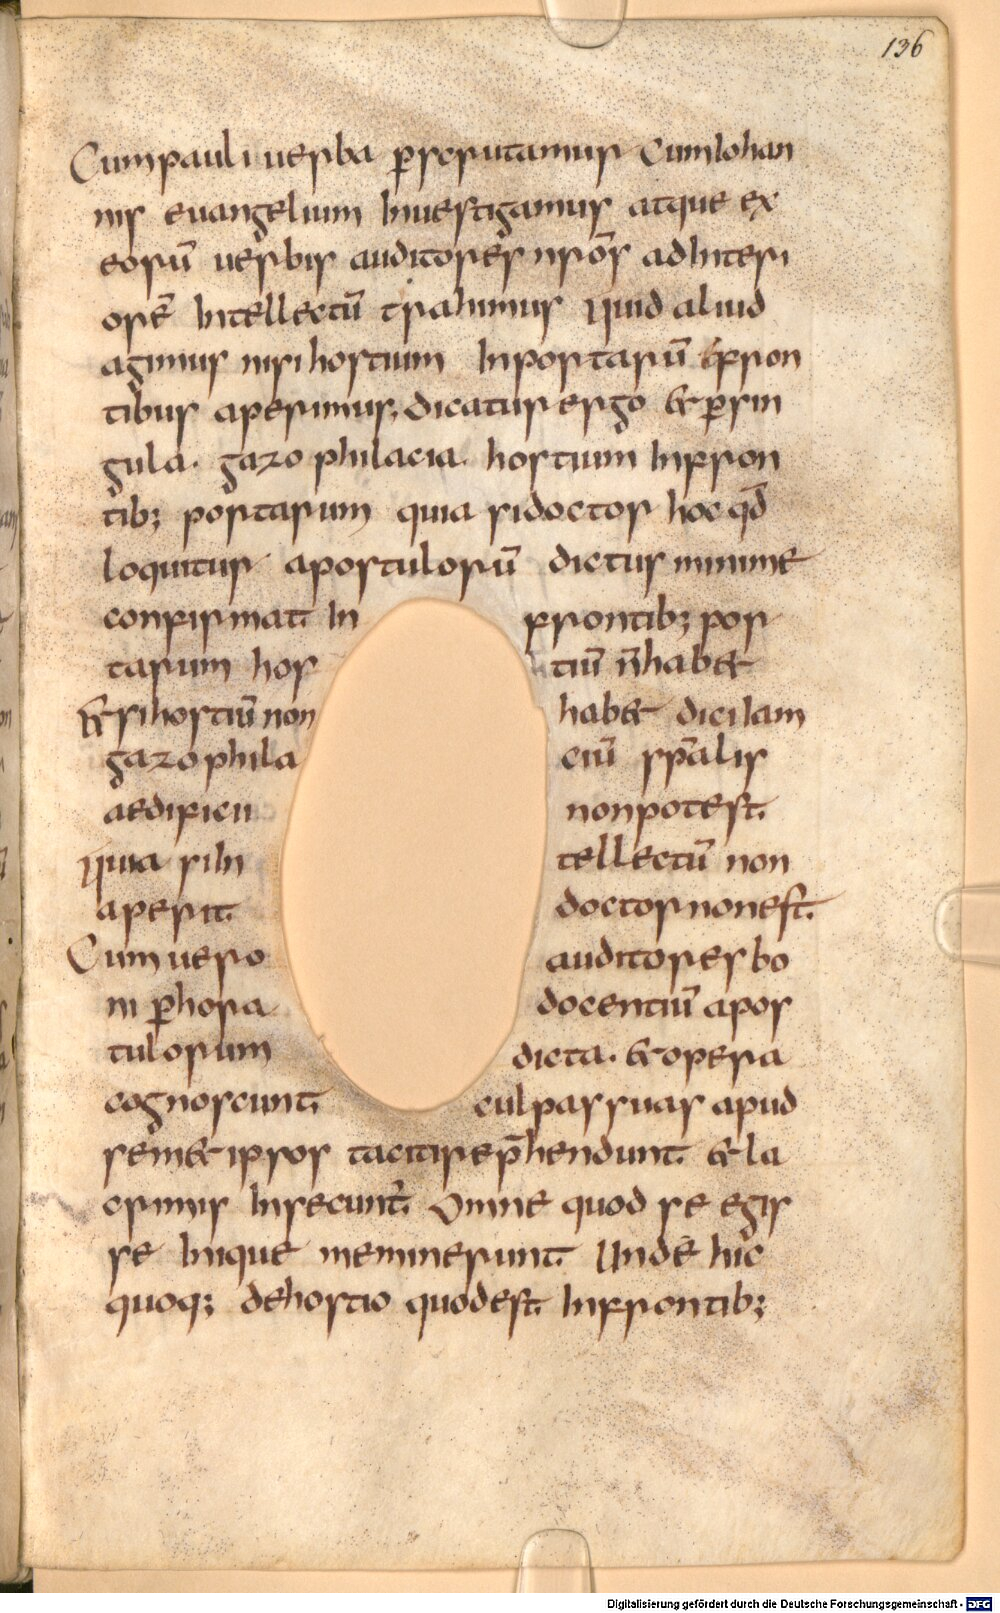 136
Cum pauli uerba pscrutamur Cum Iohan
nis euangelium Inuestigamus atque ex
eorū uerbis auditores nrōs ad Interi
orē Intellectū trahimus quid aliud
agimus nisi hostium In portarū & fron
tibus aperimus. dicatur ergo & p sin
gula. gazo philacia. hostium In fron
tib; portarum quia si doctor hoc qđ
loquitur apostulorū dictus minime
confirmat. In frontib; por
tarum hos tiū n̄ hab&
& si hostiū non hab& dici iam
gazo phila ciū sp̄alis
aedificii non potest.
quia si In tellectū non
aperit. doctor non est.
Cum uero auditores bo
ni p hora docentiū apos
tulorum dicta. & opera
cognoscunt. culpas suas apud
sem& ipsos taciti rep̄hendunt. & la
crimis Insecunt̄. Omne quod se egis
se Inique meminerunt. Unde hic
quoq; de hostio quod est. In frontib;
Digitalisierung gefördert durch die Deutsche Forschungsgemeinschaft - DFG